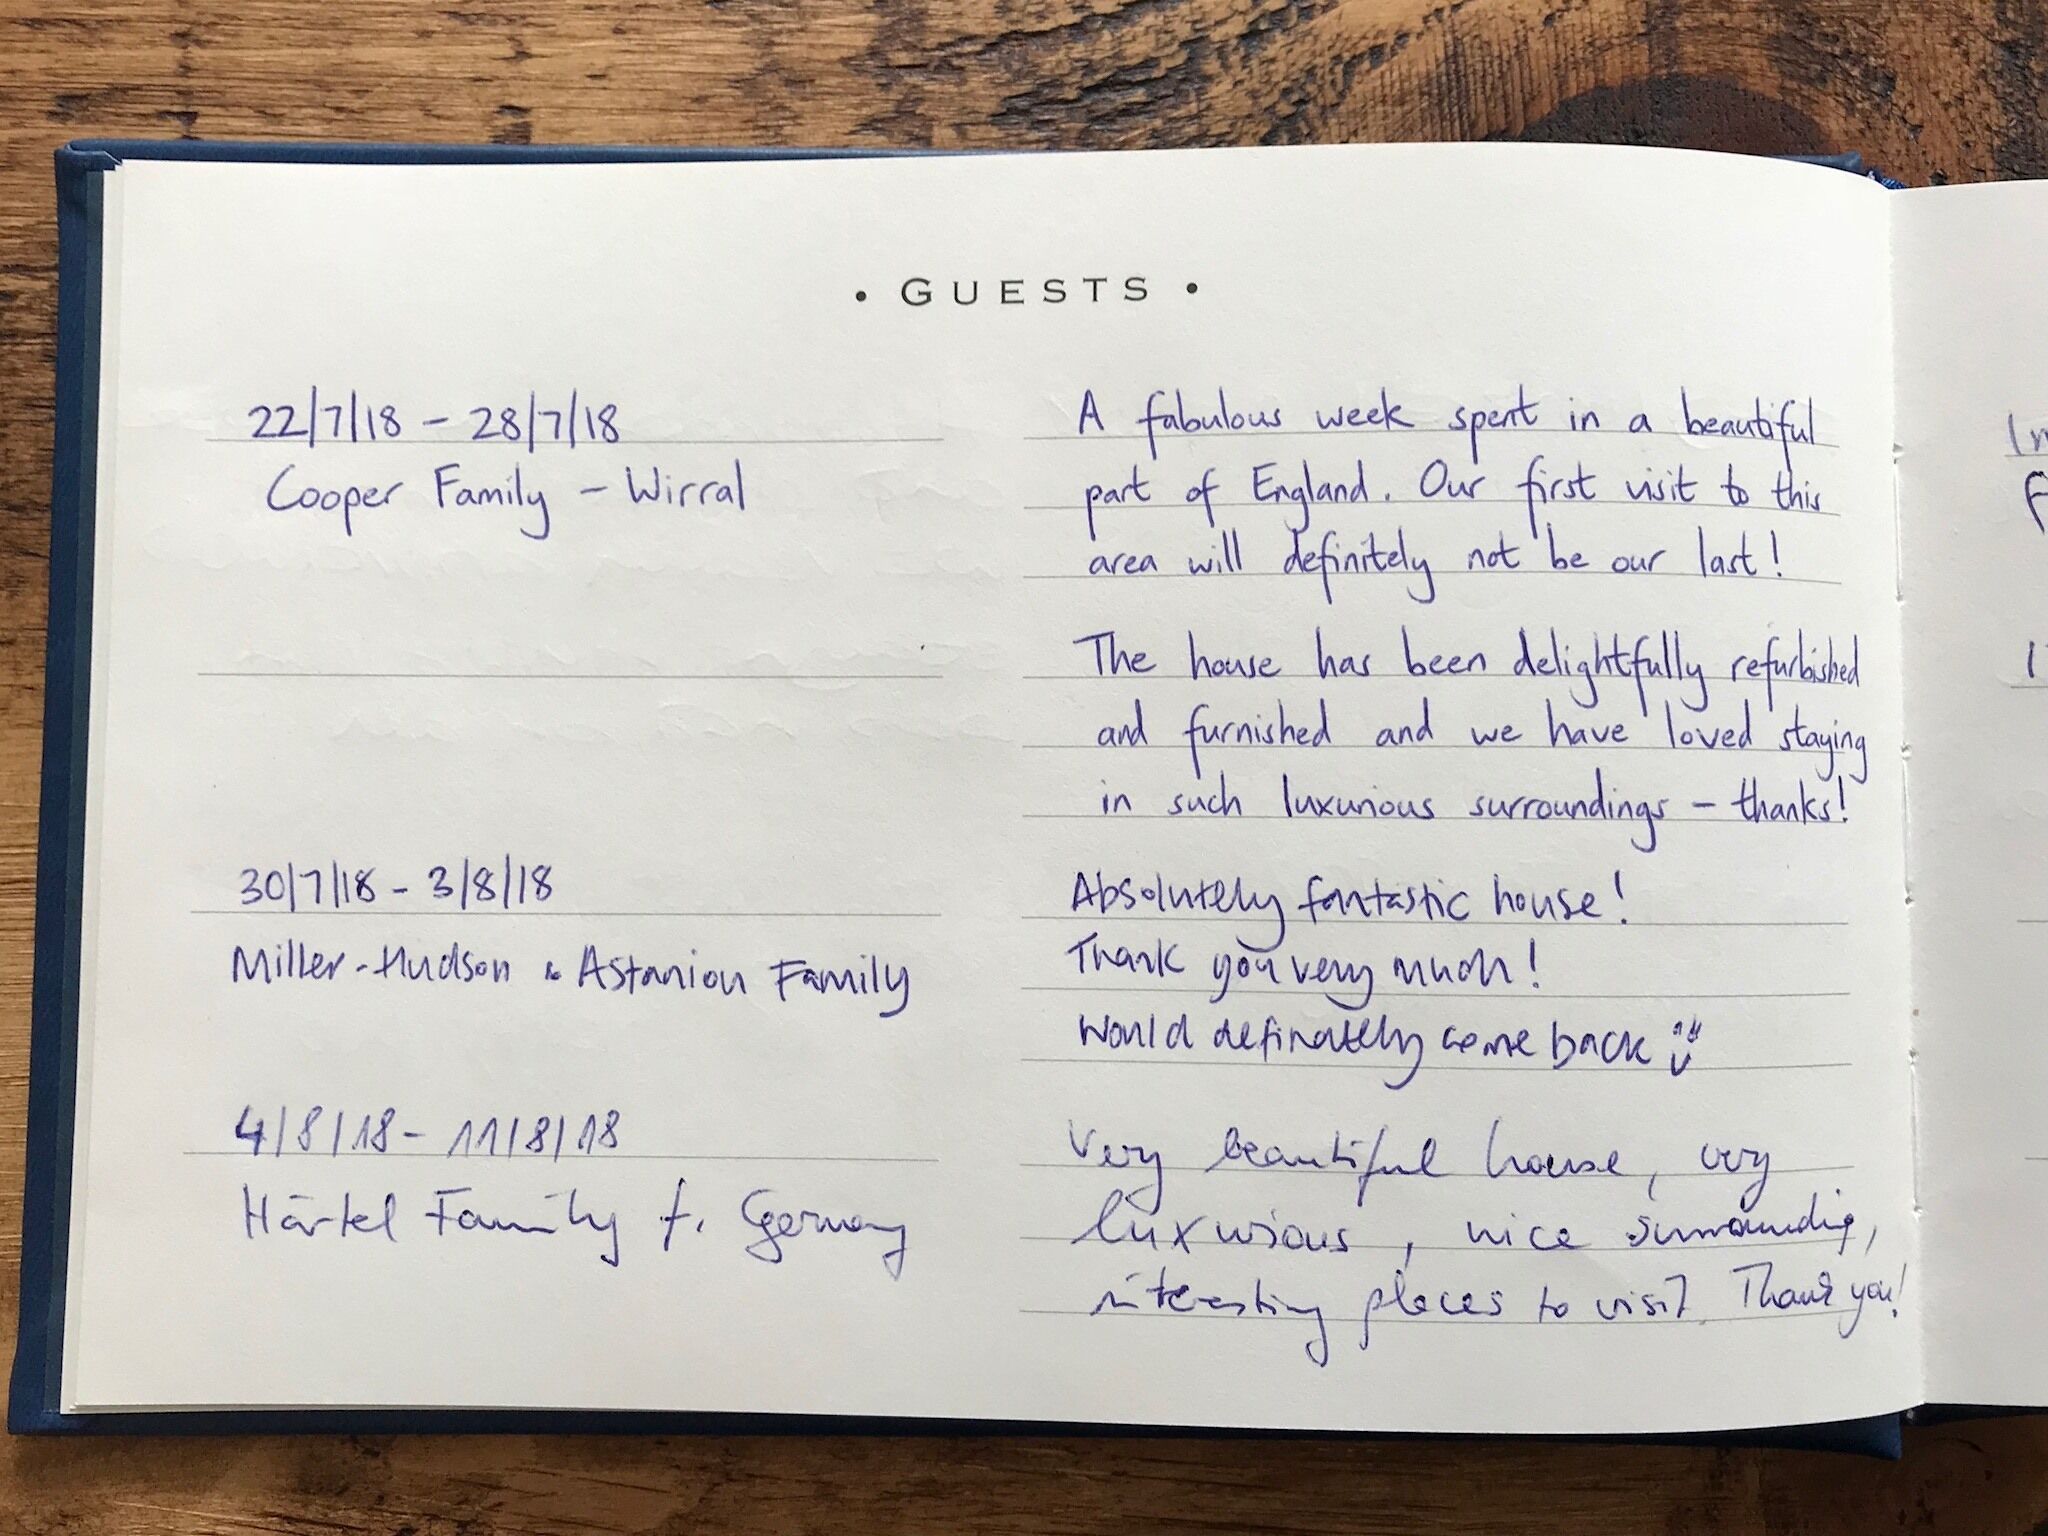 • GUESTS •
22/7/18 – 28/7/18
Cooper Family – Wirral
A fabulous week spent in a beautiful
part of England. Our first visit to this
area will definitely not be our last!
The house has been delightfully refurbished
and furnished and we have loved staying
in such luxurious surroundings – thanks!
30/7/18 - 3/8/18
Miller-Hudson & Astanion Family
Absolutely fantastic house!
Thank you very much!
Would definately come back
4/8/18 - 11/8/18
Härtel Family f. Germany
Very beautiful house, very
luxurious, nice surrounding,
interesting places to visit. Thank you!